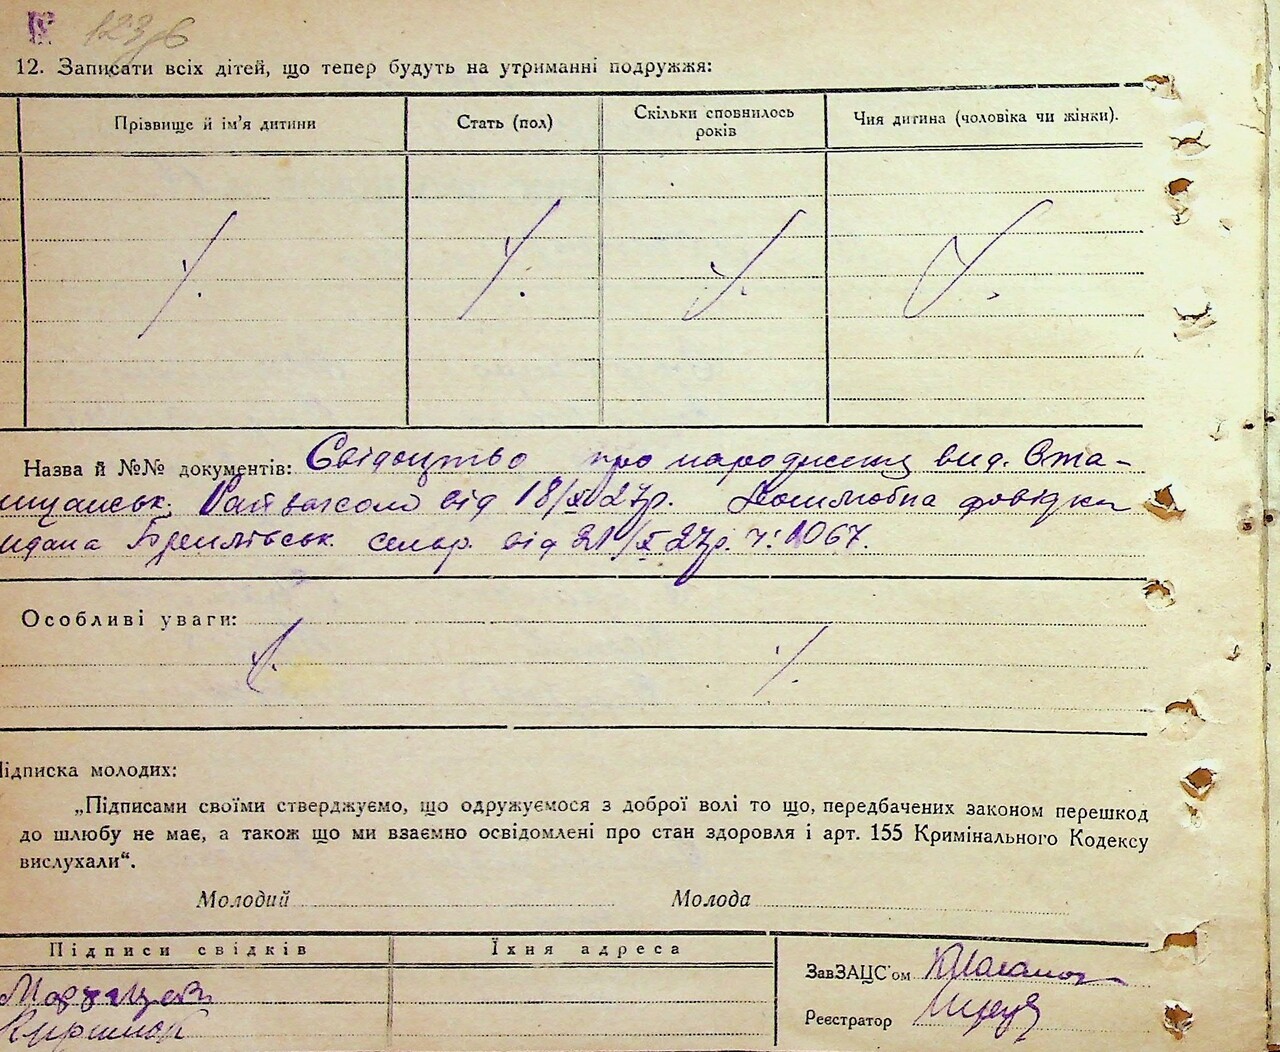 123
12. Записати всіх дітей, що тепер будуть на утриманні подружжя:
Прізвище й ім'я дитини
Стать (пол)
Скільки сповнилось
років
Чия дитина (чоловіка чи жінки).
Назва й №№ документів: Свідоцтво про народження вид. Ста-
від 18/XI 27р. Дошлюбна довідка
сельр. від 21/X 27р. ч: 1067.
Особливі уваги:
ідписка молодих:
„Підписами своїми стверджуємо, що одружуємося з доброї волі то що, передбачених законом перешкод
до шлюбу не має, а також що ми взаємно освідомлені про стан здоровля і арт. 155 Кримінального Кодексу
вислухали“.
Молодий
Молода
Підписи свідків
Їхня адреса
ЗавЗАЦС'ом
Реєстратор